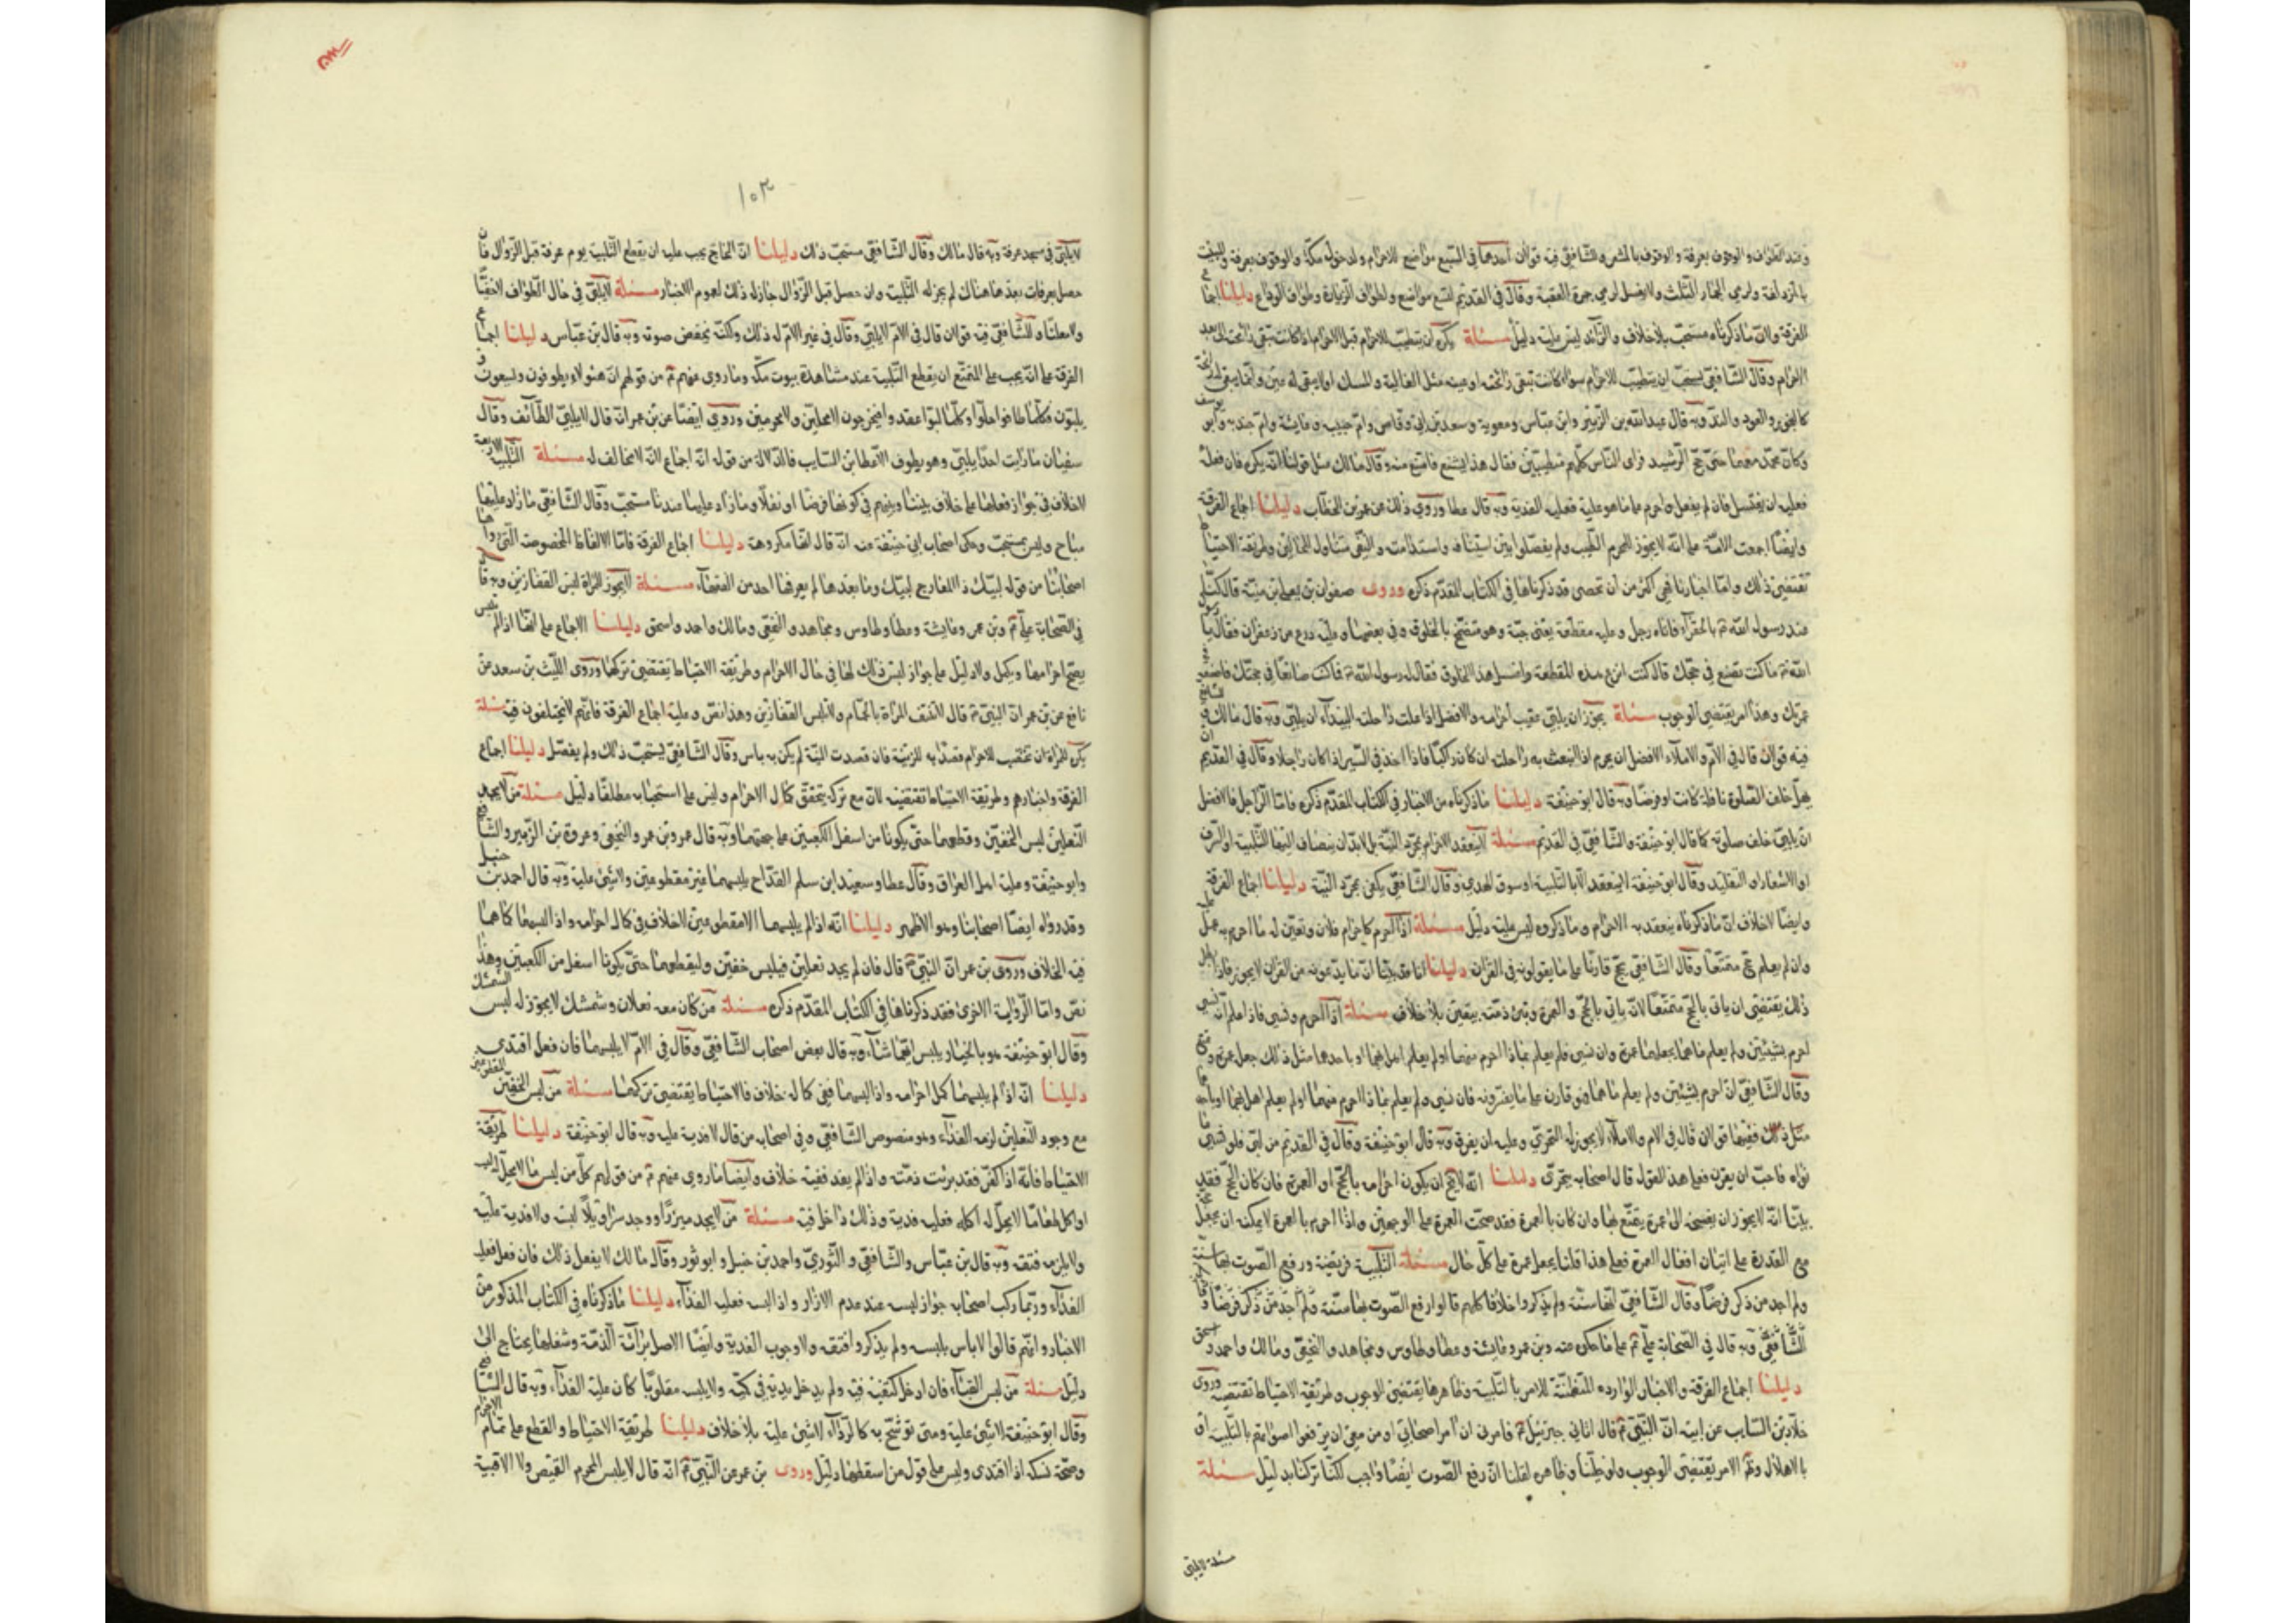 وعند الطواف والوقوف بعرفة والوقوف بالمشعر وللشافعي فيه قولان أحدهما في السبع مواضع للاحرام ولدخول مكة والوقوف بعرفة والمبيت
بالمزدلفة ولرمي الجمار الثلث ولا يغسل لرمي جمرة العقبة وقال في القديم لتسع مواضع ولطواف الزيارة وطواف الوداع دليلنا اجماع
الفرقة ولان ماذكرناه مستحب بلا خلاف والزائد ليس عليه دليل مسئلة يكره ان يتطيب للاحرام قبل الاحرام اذا كانت تبقى رائحته الى بعد
الاحرام وقال الشافعي يستحب ان يتطيب للاحرام سواء كانت تبقى رائحته او عينه مثل الغالية والمسك او لا يبقى له عين وانما يبقى له رائحة
كالبخور والعود والند وبه قال عبدالله بن الزبير وابن عباس ومعوية وسعد بن ابي وقاص وام حبيبه وعايشة وام جندبه وابو يوسف
وكان محمد معهما حتى حج الرشيد فراى الناس كلهم متطيبين فقال هذا يشنع فامتنع منه وقال مالك مثل قولنا انه يكره فان فعل
فعليه ان يغتسل فان لم يفعل واحرم على ما هو عليه فعليه الفدية وبه قال عطا وروي ذلك عن عمر بن الخطاب دليلنا اجماع الفرقة
وايضا اجمعت الامة على انه لا يجوز للمحرم الطيب ولم يفصلوا بين استيناف واستدامت والنهي متناول للحالين وطريقة الاحتياط
تقتضي ذلك واما اخبارنا فهي اكثر من ان تحصى قد ذكرناها في الكتاب المقدم ذكره وروى صفوان بن يعلى بن منية قال كنا
عند رسول الله ص بالجعرانه فاتاه رجل وعليه مقطعة يعنى جبة وهو متضمخ بالخلوق وفي بعضها وعليه ردع من زعفران فقال يا رسول
الله ص ما كنت تصنع في حجك قال كنت انزع هذه المقطعة واغسل هذا الخلوق فقال له رسول الله ص فاكنت صانعا في حجك فاصنعه في
عمرتك وهذا امر يقتضي الوجوب مسئلة يجوز ان يلبي عقيب احرامه والافضل اذا علت راحلته البيداء ان يلبي وبه قال مالك
فيه قولان قال في الام والاملاء الافضل ان يحرم اذا انبعث به راحلته ان كان راكبا فاذا اخذ في السير اذا كان راجلا وقال في القديم
يهل خلف الصلوة نافلة كانت او فرضا وبه قال ابو حنيفة دليلنا ماذكرناه من الاخبار في الكتاب المقدم ذكره فاما الراجل فالافضل
ان يلبي خلف صلوته كما قال ابو حنيفة والشافعي في القديم مسئلة لا ينعقد الاحرام بمجرد النية بل لابد ان ينضاف اليها التلبية او السوق
او الاشعار او التقليد وقال ابو حنيفة لا ينعقد الا بالتلبية او سوق الهدي وقال الشافعي يكفي مجرد النية دليلنا اجماع الفرقة
وايضا لا خلاف ان ماذكرناه ينعقد به الاحرام وماذكروه ليس عليه دليل مسئلة اذا احرم كاحرام فلان وتعين له ما احرم به عمل عليه
وان لم يعلم حج متمتعا وقال الشافعي يحج قارنا على ما يقولونه في القران دليلنا انا قد بينا ان ما يدعونه من القران لا يجوز فاذا بطل
ذلك يقتضي ان ياتي بالحج متمتعا لانه ياتي بالحج والعمرة وتبرئ ذمته بيقين بلا خلاف مسئلة اذا احرم ونسي فاذا علم انه
احرم بشيئين ولم يعلم ماهما يجعلهما عمرة وان نسي فلم يعلم بماذا احرم منهما او لم يعلم اهل بهما او باحدهما مثل ذلك جعل عمرة
وقال الشافعي ان احرم بشيئين ولم يعلم ماهما فهو قارن على ما يفسرونه فان نسي ولم يعلم بماذا احرم منهما او لم يعلم اهل بهما او باحدهما
مثل ذلك ففيها قولان قال في الام والاملاء لا يجوز له التحري وعليه ان يقرن وبه قال ابو حنيفة وقال في القديم من لبى فلو نسي
نواه فاحب ان يقرن فعلى هذا القول قال اصحابه يتحرى دليلنا انه لا يخ ان يكون احرامه بالحج او العمرة فان كان بالحج فقد
بينا انه لا يجوز ان يفسخه الى عمرة يتمتع بها وان كان بالعمرة فقد صحت العمرة على الوجهين واذا احرم بالعمرة لا يمكنه ان يجعلها
مع القدرة على اتيان افعال العمرة فعلى هذا قلنا يجعل عمرة على كل حال مسئلة التلبية فريضة ورفع الصوت بها سنة
ولم اجد من ذكر فرضا وقال الشافعي انها سنة ولم يذكروا خلافا كلهم قالوا رفع الصوت بها سنة ولم اجد من ذكر فرضا
الشافعي وبه قال في الصحابة علي ع على ما حكى عنه وبن عمر وعايشة وعطا وطاوس ومجاهد والنخعي ومالك واحمد واسحق
دليلنا اجماع الفرقة والاخبار الوارده المتضمنة للامر بالتلبية وظاهرها يقتضي الوجوب وطريقة الاحتياط تقتضيه وروى
خلاد بن السايب عن ابيه ان النبي ص قال اتاني جبرئيل ع فامرني ان امر اصحابي او من معي ان يرفعوا اصواتهم بالتلبية او
بالاهلال وظ الامر يقتضي الوجوب ولو خلينا وظاهره لقلنا ان رفع الصوت ايضا واجب لكنا تركناه بدليل مسئلة
مسئلة لا يلبي
١٠٣
لا يلبي في مسجد عرفة وبه قال مالك وقال الشافعي مستحب ذلك دليلنا ان الحاج يجب عليه ان يقطع التلبية يوم عرفة قبل الزوال فان
حصل بعرفات بعدها هناك لم يجز له التلبية وان حصل قبل الزوال جاز له ذلك لعموم الاخبار مسئلة لا يلبي في حال الطواف لا خفيا
ولا معلنا وللشافعي فيه قولان قال في الام لا يلبي وقال في غير الام له ذلك ولكنه يخفض صوته وبه قال بن عباس دليلنا اجماع
الفرقة على انه يجب على المتمتع ان يقطع التلبية عند مشاهدة بيوت مكة وما روي عنهم ع من قولهم ان هؤلاء يطوفون ويسعون و
يلبون وكلما طافوا احلوا وكلما لبوا عقدوا فيخرجون لا محلين ولا محرمين وروي ايضا عن بن عمر انه قال لا يلبي الطائف وقال
سفيان ما رايت احدا يلبي وهو يطوف الا عطا بن السايب فالدلالة من قوله انه اجماع لانه لا مخالف له مسئلة التلبيات الاربعة
لا خلاف في جواز فعلها على خلاف بيننا وبينهم في كونها فرضا او نفلا وما زاد عليها عندنا مستحب وقال الشافعي ما زاد عليها
مباح وليس بمستحب وحكى اصحاب ابي حنيفة عنه انه قال انها مكروهة دليلنا اجماع الفرقة فاما الالفاظ المخصوصة التي رواها
اصحابنا من قوله لبيك ذا المعارج لبيك وما بعدها لم يعرفها احد من الفقهاء مسئلة لا يجوز للمراة لبس القفازين وبه قال
في الصحابة علي ع وبن عمر وعايشة وعطا وطاوس ومجاهد والنخعي ومالك واحمد واسحق دليلنا الاجماع على انها اذا لم تلبس
يصح احرامها ويكمل ولا دليل على جواز لبس ذلك لها في حال الاحرام وطريقة الاحتياط يقتضي تركها وروى الليث بن سعد عن
نافع عن بن عمر ان النبي ص قال لا تنتقب المراة بالحرام ولا تلبس القفازين وهذا نص وعليه اجماع الفرقة فانهم لا يختلفون فيه مسئلة
يكره للمراة ان تختضب للاحرام قصدت به للزينة فان قصدت السنة لم يكن به باس وقال الشافعي يستحب ذلك ولم يفصل دليلنا اجماع
الفرقة واخبارهم وطريقة الاحتياط تقتضيه لان مع تركه يتحقق كمال الاحرام وليس على استحبابه مطلقا دليل مسئلة من لا يجد
النعلين لبس الخفين وقطعهما حتى يكونا من اسفل الكعبين على جهتهما وبه قال عمر وبن عمر والنخعي وعروة بن الزبير والشافعي
وابو حنيفة وعليه اهل العراق وقال عطا وسعيد ابن سلم القداح يلبسهما غير مقطوعين ولا شئ عليه وبه قال احمد بن حنبل
وقد رواه ايضا اصحابنا وهو الاظهر دليلنا انه اذا لم يلبسهما الا مقطوعين لا خلاف في كمال احرامه واذا لبسهما كما هما
فيه الخلاف وروى بن عمر ان النبي ص قال فان لم يجد نعلين فيلبس خفين وليقطعهما حتى يكونا اسفل من الكعبين وهذا
نص واما الرواية الاخرى فقد ذكرناها في الكتاب المقدم ذكره مسئلة من كان معه نعلان وشمشك لا يجوز له لبس الشمشك
وقال ابو حنيفة هو بالخيار يلبس ايهما شاء وبه قال بعض اصحاب الشافعي وقال في الام لا يلبسهما فان فعل افتدى
دليلنا انه اذا لم يلبسهما كمل احرامه واذا لبسهما ففي كماله خلاف فالاحتياط يقتضي تركهما مسئلة من لبس الخفين المقطوعين
مع وجود النعلين لزمه الفداء وهو منصوص الشافعي وفي اصحابه من قال لا فدية عليه وبه قال ابو حنيفة دليلنا طريقة
الاحتياط فانه اذا كفر فقد برئت ذمته واذا لم يفد ففيه خلاف وايضا ما روي عنهم ع من قولهم كل من لبس ما لا يحل له لبسه
او اكل طعاما لا يحل له اكله فعليه فدية وذلك داخل فيه مسئلة من لا يجد ميزرا ووجد سراويلا لبسه ولا فدية عليه
ولا يلزمه فتقه وبه قال بن عباس والشافعي والثوري واحمد بن حنبل وابو ثور وقال مالك لا يفعل ذلك فان فعل فعليه
الفداء وربما ركب اصحابه جواز لبسه عند عدم الازار واذا لبسه فعليه الفداء دليلنا ماذكرناه في الكتاب المذكور من
الاخبار وانهم قالوا لا باس بلبسه ولم يذكروا فتقه ولا وجوب الفدية وايضا الاصل برائة الذمة وشغلها يحتاج الى
دليل مسئلة من لبس القباء فان ادخل كتفيه فيه ولم يدخل يديه في كميه ولا يلبسه مقلوبا كان عليه الفداء وبه قال الشافعي
وقال ابو حنيفة لا شئ عليه ومتى توشح به كالرداء لا شئ عليه بلا خلاف دليلنا طريقة الاحتياط والقطع على تمام الاحرام
وصحة نسكه اذا افتدى وليس على قول من اسقطها دليل وروى بن عمر عن النبي ص انه قال لا يلبس المحرم القميص ولا الاقبية